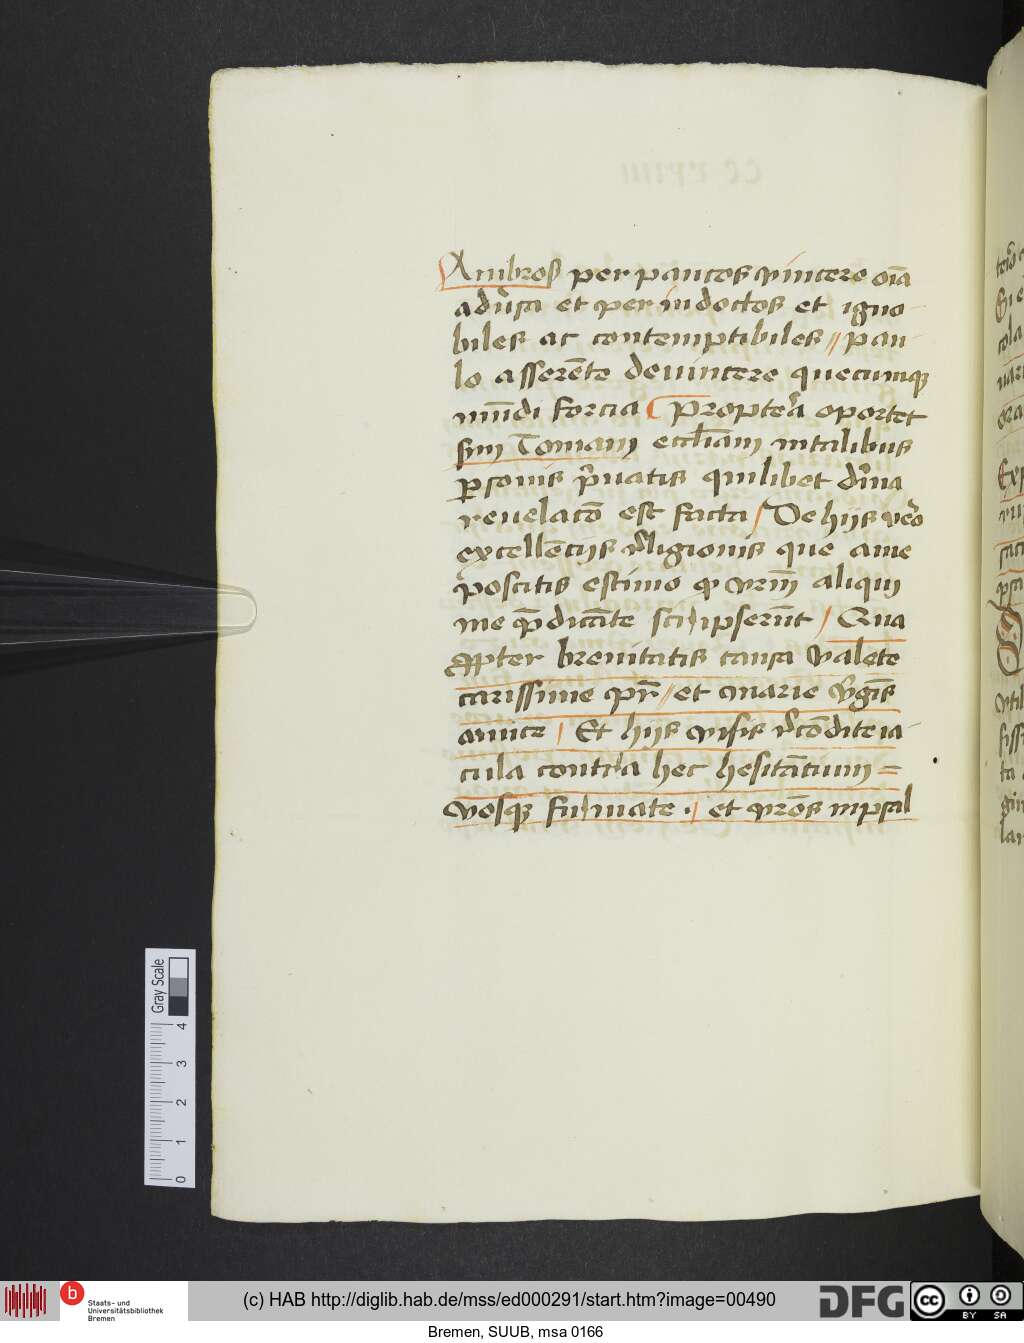 Ambros per paucos vincere oīa
aduˢsa et per indoctos et igno
biles ac contemptibiles // pau
lo asserēte deuincere quecumque
mūdi forcia Propterᵃ oportet
scm̄ Tomam eccliam in talibus
ꝑsonis p̄uatis quilibet diuina
reuelacō est facta / De hijs vᵒo
excellēcijs religionis que a me
poscitis estimo qd vrm̄ aliqui
me p̄dicāte scripserūt / Qua
ꝓpter breuitatis causa valete
carissime pr̄ // et marie vgīs
amice / Et hijs visis recōdite ia
cula contra hec hesitācium =
vosque firmate ./ et vros in psal
Gray Scale
0 1 2 3 4
b
Staats- und
Universitätsbibliothek
Bremen
(c) HAB http://diglib.hab.de/mss/ed000291/start.htm?image=00490
DFG
cc BY SA
Bremen, SUUB, msa 0166